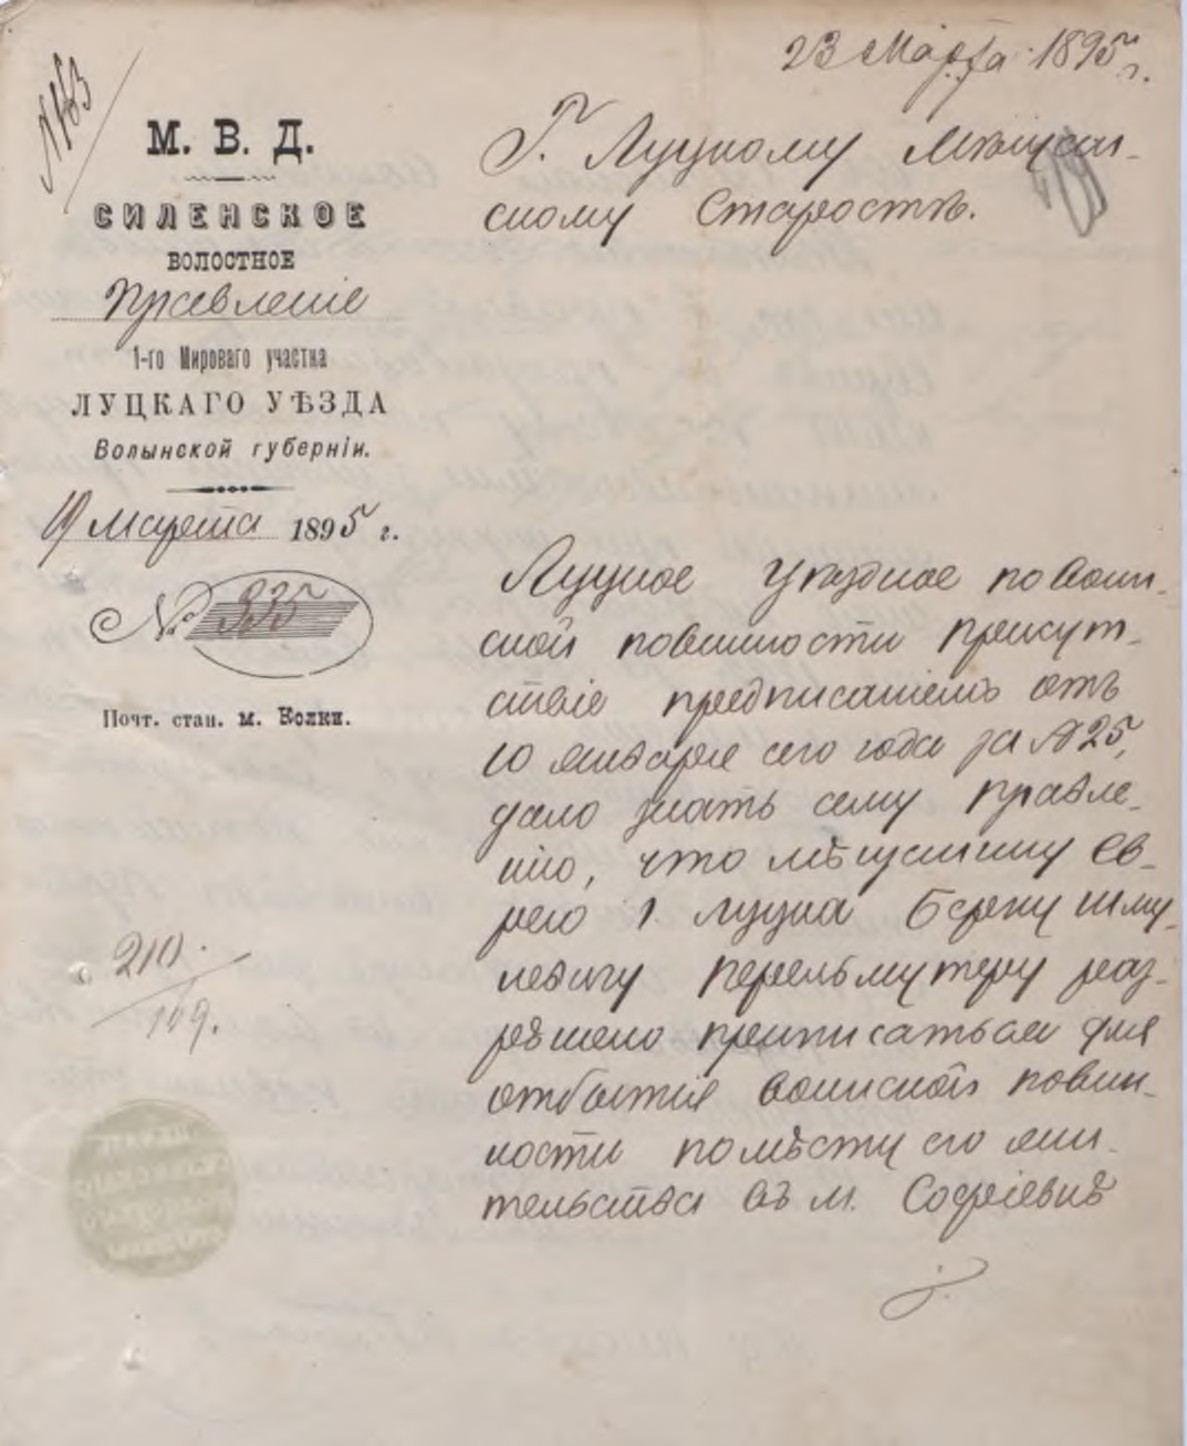 23 Марта 1895 г.
№163
М. В. Д.
СИЛЕНСКОЕ
ВОЛОСТНОЕ
Правленіе
1-го Мироваго участка
ЛУЦКАГО УѢЗДА
Волынской губерніи.
19 Марта 1895 г.
№ 335
Почт. стан. м. Колки.
210.
109.
Г. Луцкому Мѣщан-
скому Старостѣ.
Луцкое Уѣздное по воин-
ской повинности Присут-
ствіе предписаніемъ отъ
10 января сего года за № 25,
дало знать сему правле-
нію, что мѣщанину ев-
рею г. Луцка Берку Шму-
левичу Перельмутеру раз-
рѣшено приписаться для
отбытія воинской повин-
ности по мѣсту его жи-
тельства въ м. Софіевкѣ